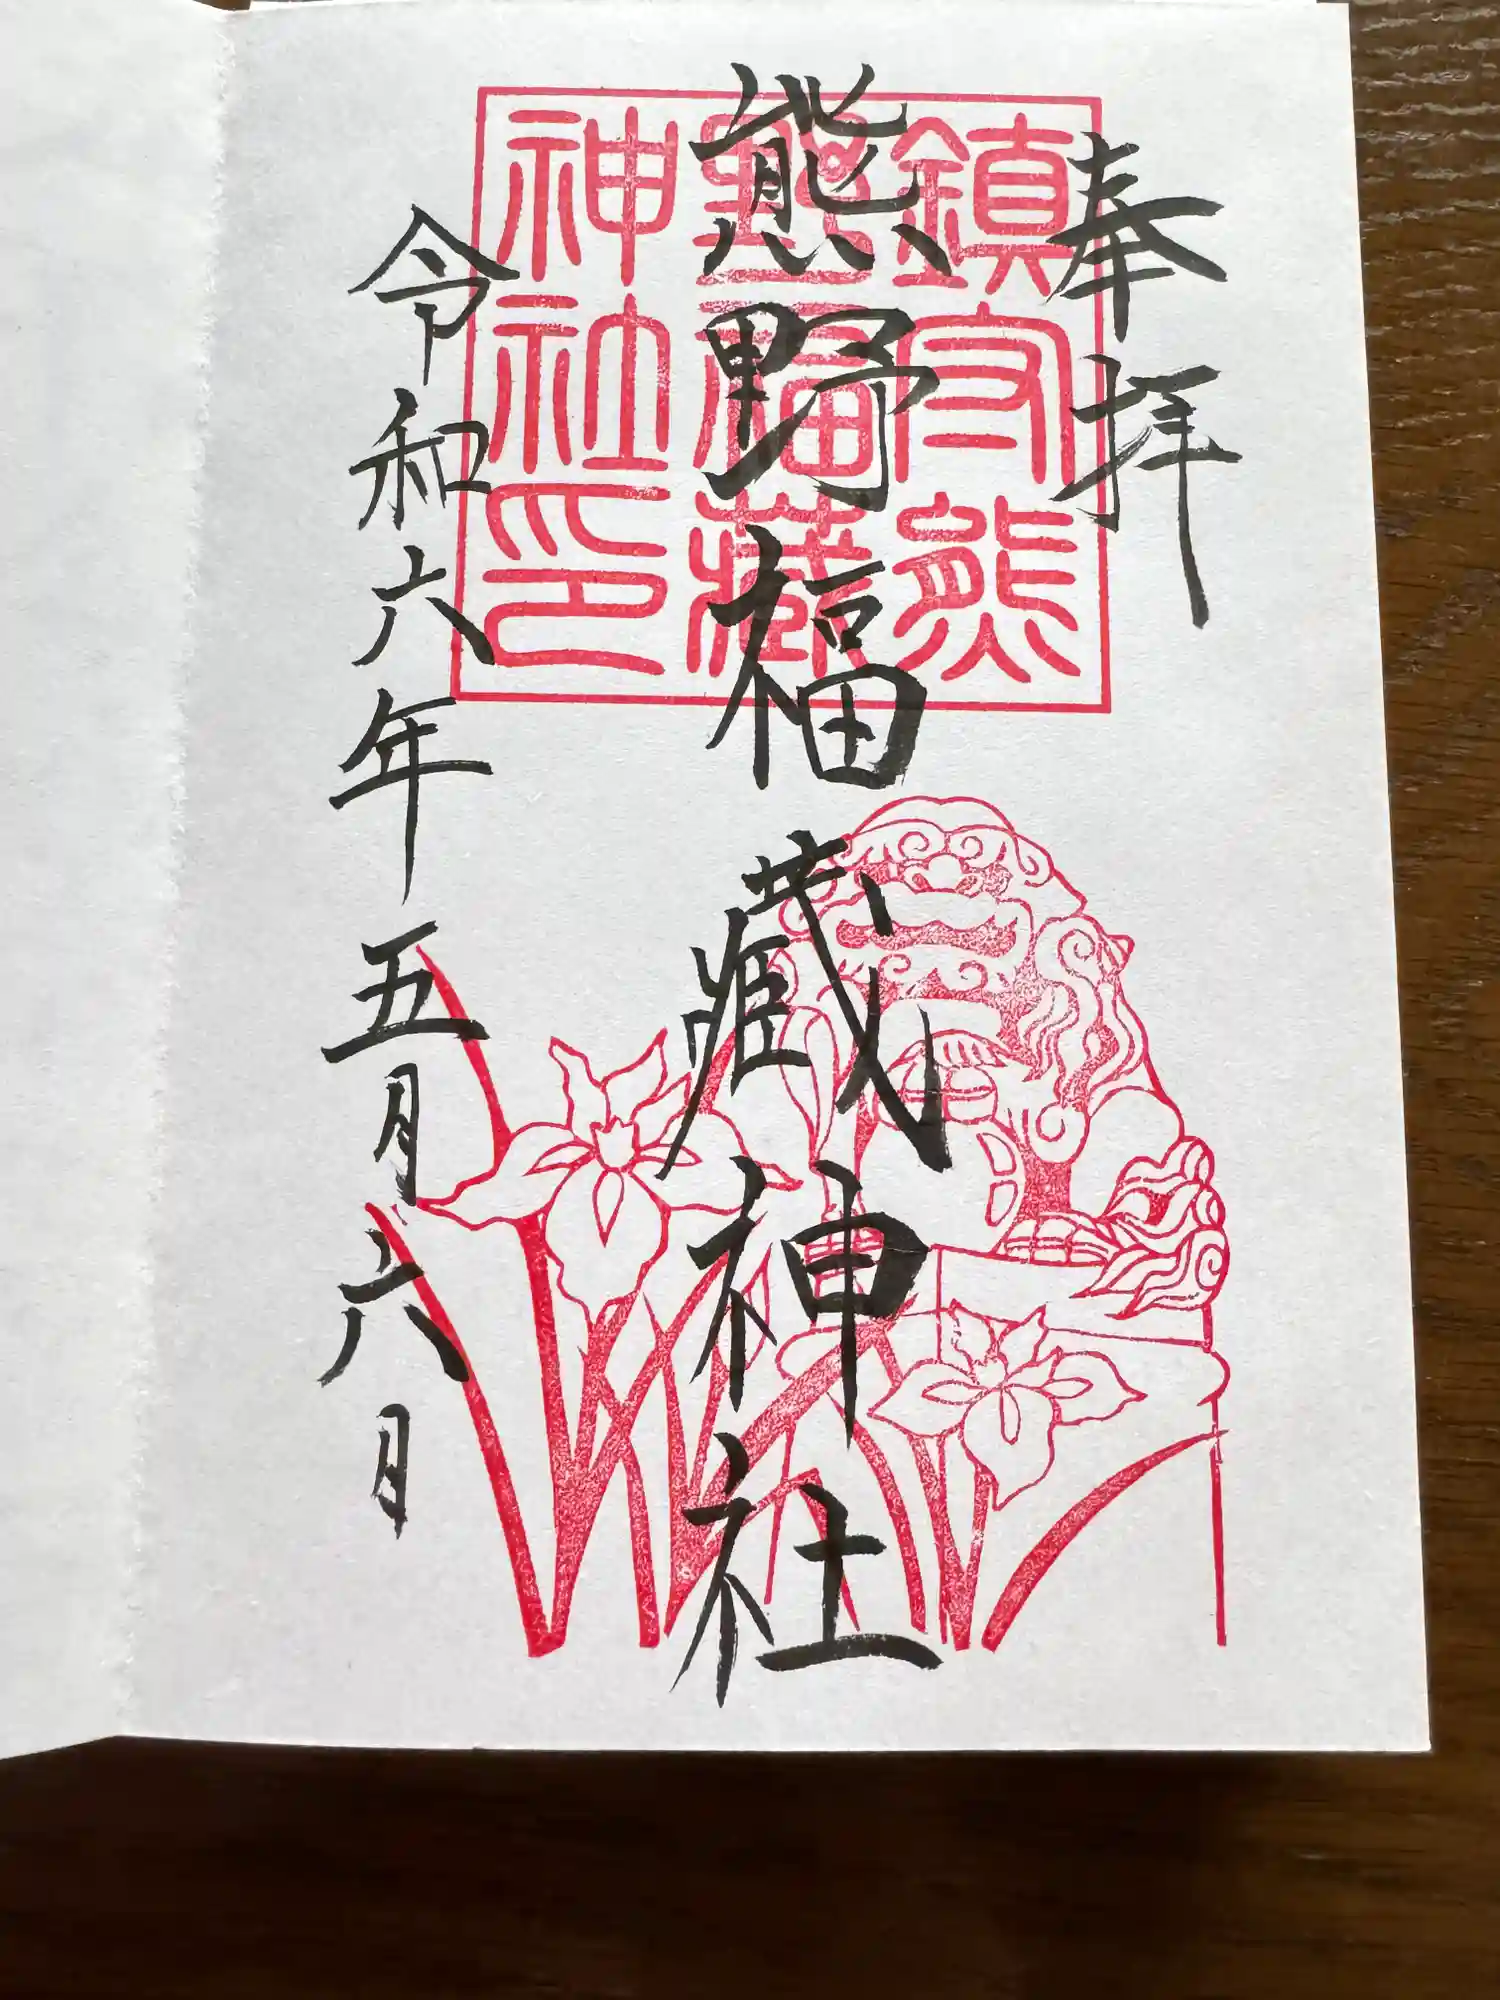 奉拝
熊野福蔵神社
令和六年五月六日
鎮守熊
野福藏
神社印